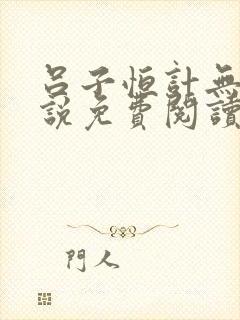 呂子恒計無
說免費閱讀
門人